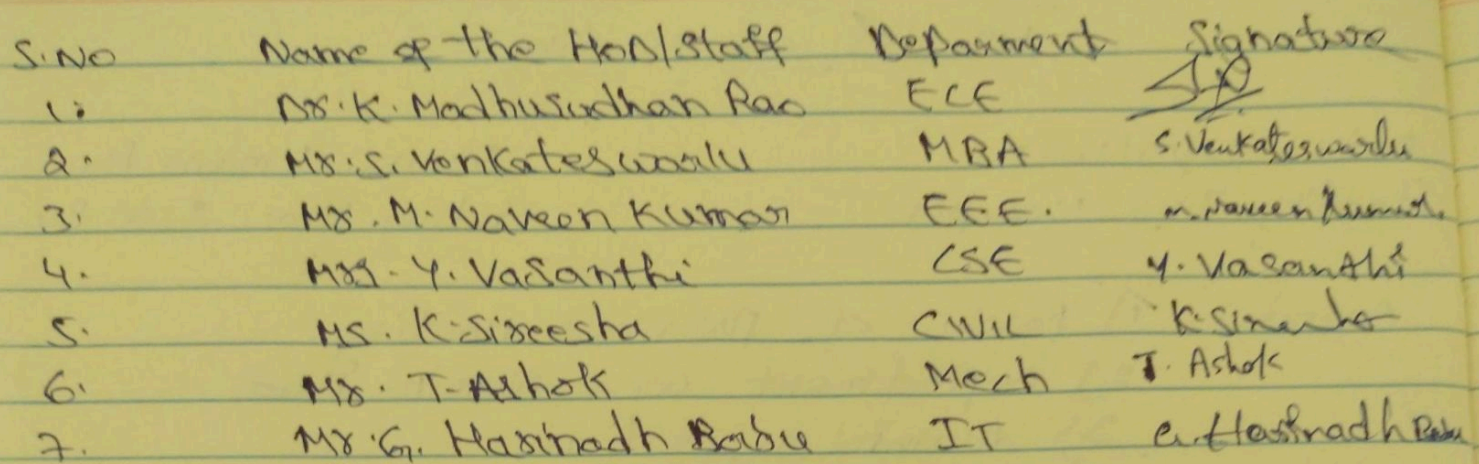 S.No Name of the HoD/Staff Deparment Signature
1. Dr. K. Madhusudhan Rao ECE
2. Mr. S. Venkateswarlu MBA S. Venkateswarlu
3. Mr. M. Naveen Kumar EEE. M. Naveen Kumar.
4. Mrs. Y. Vasanthi CSE Y. Vasanthi
5. Ms. K. Sireesha CIVIL K. Sireesha
6. Mr. T. Ashok Mech T. Ashok
7. Mr. G. Harinadh Babu IT G. Harinadh Babu